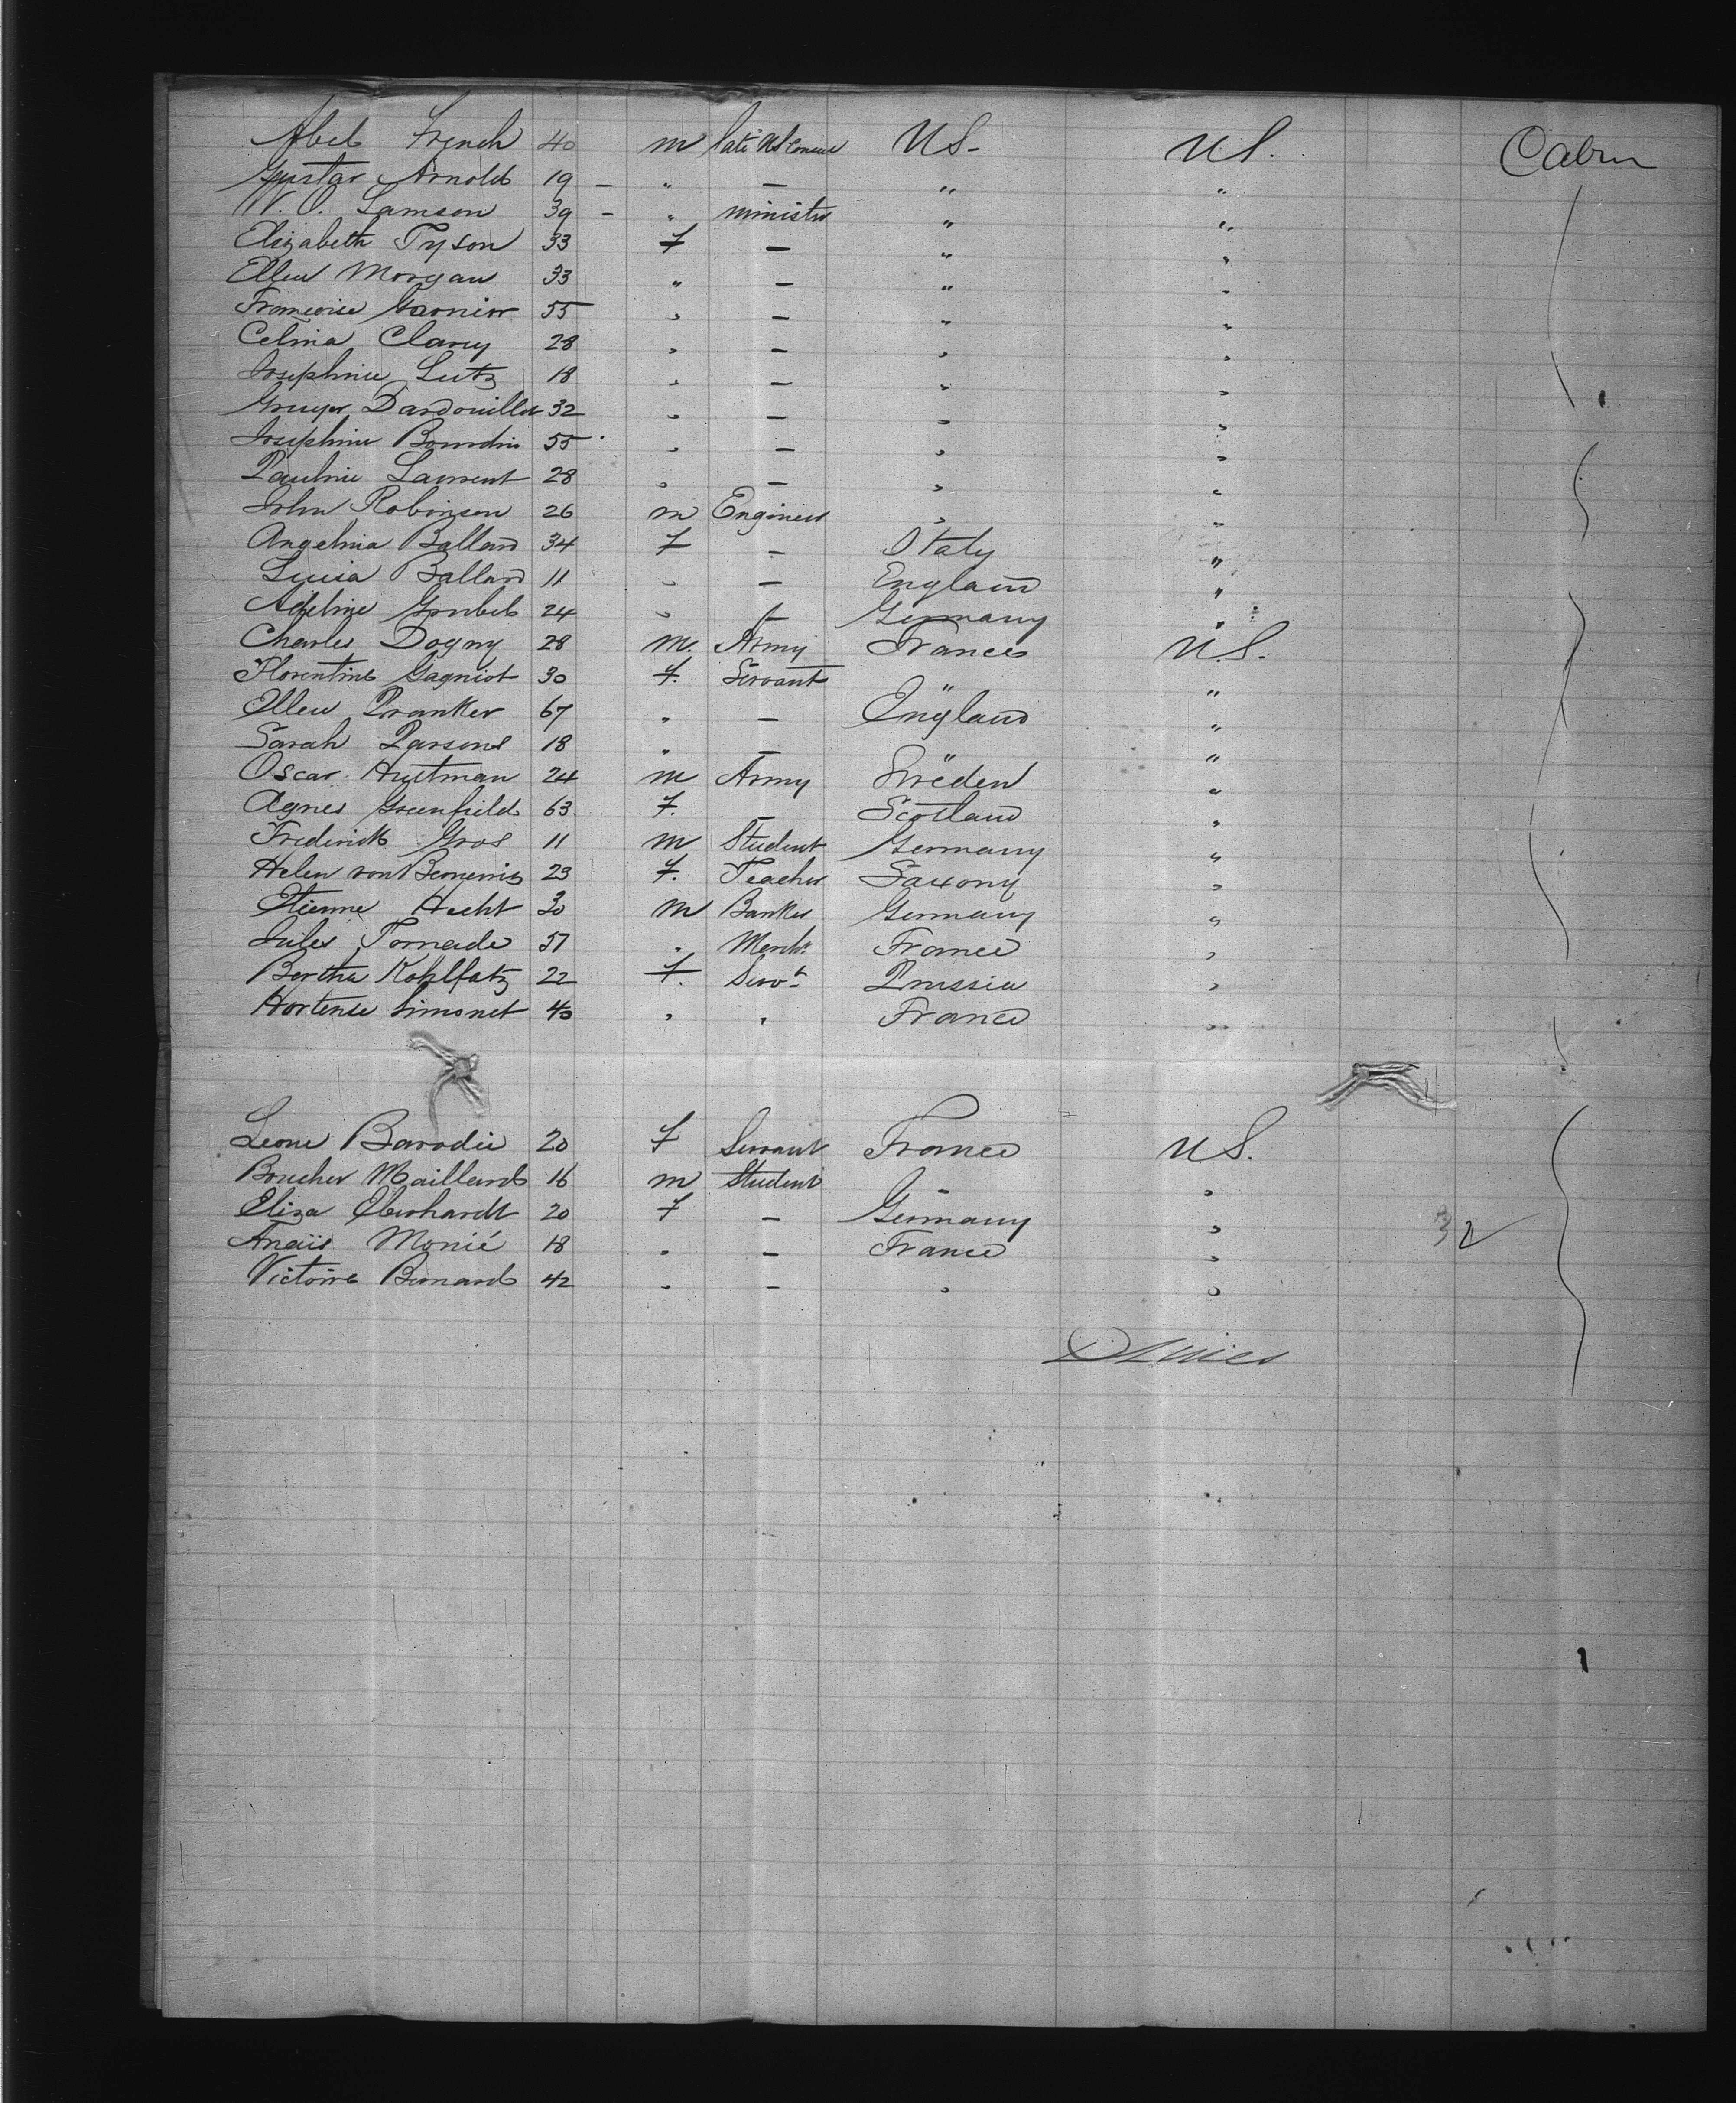 Abel French 40 m late US Consul US- US. Cabin
Gustav Arnold 19 - " — " "
W. O. Lamson 39 - " minister " "
Elizabeth Tyson 33 f — " "
Ellen Morgan 33 " — " "
Francoise Garnier 55 " — " "
Celina Clarey 28 " — " "
Josephine Lutz 18 " — " "
Gruyer Dardouillet 32 " — " "
Josephine Bourdin 55 " — " "
Pauline Laurent 28 " — " "
John Robinson 26 m Engineer " "
Angelina Ballard 34 f — Italy "
Luisa Ballard 11 " — England "
Adeline Grubel 24 " — Germany "
Charles Dogny 28 m. Army France U.S.
Florentine Gagniot 30 f. Servant " "
Ellen Pranker 67 " — England "
Sarah Parsons 18 " — " "
Oscar Hultman 24 m Army Sweden "
Agnes Greenfield 63 f. — Scotland "
Frederick Gros 11 m Student Germany "
Helen von 23 f. Teacher Saxony "
Etienne Hecht 30 m Banker Germany "
Jules Tornade 57 " Merch. France "
Bertha Kohlfatz 22 f. Servt Prussia "
Hortense Simonet 40 " " France "
Leonie Barodie 20 f Servant France US.
Boucher Maillard 16 m Student " "
Eliza Eberhardt 20 f — Germany " 32
Anaïs Monié 18 " — France "
Victoire Bernard 42 " — " "